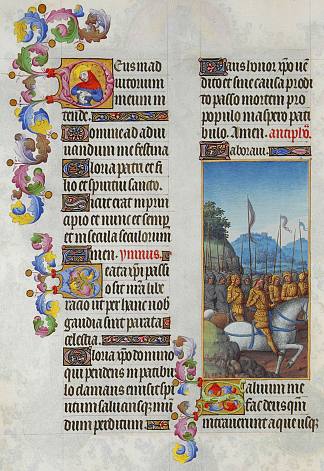 Deus in ad
iutorium
meum in
tende.
Domine ad adiu
vandum me festina
Gloria patri et fi
lio et spiritui sancto.
Sicut erat in prin
cipio et nunc et semp
et in secula seculorum
Amen. ymnus.
Beata xpi passi
o sit nra libe
racio ut per hanc nob
gaudia sint parata
celestia.
Gloria xpo domino
qui pendens in patibu
lo clamans emisit spi
ritum salvans que mu
dum perditum.
Laus honor xpo ven
dito et sine causa prodi
to passo mortem pro
populo in aspero pati
bulo. Amen. antiphona.
Laboravi.
Salvum me
fac deus qm
intraverunt aque usq